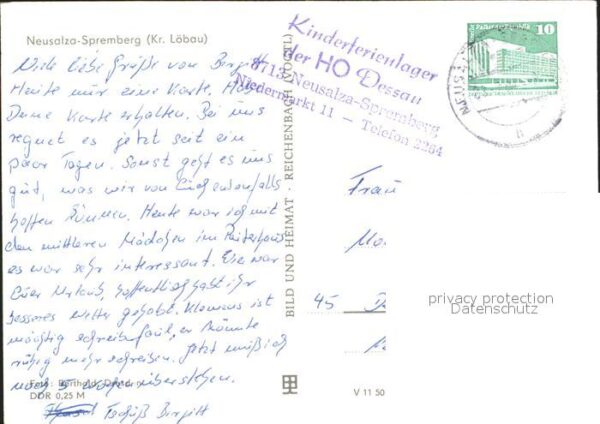 Neusalza-Spremberg (Kr. Löbau)
Viele liebe Grüße von Birgitt
Heute nur eine Karte. Habe
Deine Karte erhalten. Bei uns
regnet es jetzt seit ein
paar Tagen. Sonst geht es uns
gut, was wir von Euch ebenfalls
hoffen können. Heute war ich mit
den mittleren Mädchen im Reiterhaus
es war sehr interessant. Wie war
Euer Urlaub, hoffentlich habt ihr
besseres Wetter gehabt. Klemens ist
mächtig schreibfaul, er könnte
ruhig mehr schreiben. Jetzt muß ich
noch 5 überstehen.
Tschüß Birgitt
Foto: Berthold, Dresden
DDR 0,25 M
BILD UND HEIMAT · REICHENBACH (VOGTL)
Kinderferienlager
der HO Dessau
8713 Neusalza-Spremberg
Niedermarkt 11 - Telefon 2264
10
NEUSAL
Frau
45
privacy protection
Datenschutz
V 11 50